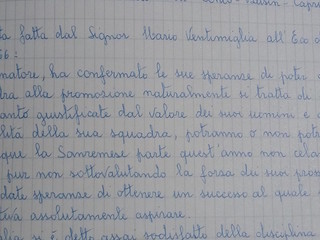 ta fatta dal Signor Mario Ventimiglia all'Eco d
56:
natore, ha confermato le sue speranze di poter
dra alla promozione naturalmente si tratta di
anto giustificate dal valore dei suoi uomini e d
lità della sua squadra, potranno o non pot
que la Sanremese parte quest'anno non cela
pur non sottovalutando la forza dei suoi pros
date speranze di ottenere un successo al quale
tiva assolutamente aspirare.
si è detto assai sodisfatto della disciplina